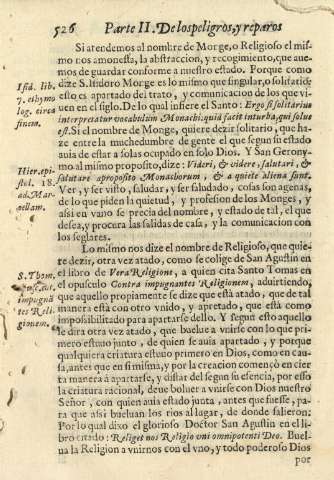 526 Parte II. De los peligros, y reparos
Si atendemos al nombre de Monge, o Religioso el mis-
mo nos amonesta, la abstraccion, y recogimiento, que aue-
mos de guardar conforme a nuestro estado. Porque como
Isid. lib.
dize S. Isidoro Monge es lo mismo que singular, o solitario
7. ethymo
esto es apartado del trato, y comunicacion de los que vi-
log. circa
uen en el siglo. De lo qual infiere el Santo: Ergo si solitarius
finem.
interpretatur vocabulum Monachi: quid facit in turba, qui solus
est. Si el nombre de Monge, quiere dezir solitario, que ha-
ze entre la muchedumbre de gente el que segun su estado
auia de estar a solas ocupado en solo Dios. Y San Gerony-
mo al mismo proposito, dize: Videri, & videre, salutari, &
Hier. epi-
salutare a proposito Monachorum, & a quiete aliena sunt.
stol. 18.
Ver, y ser visto, saludar, y ser saludado, cosas son agenas,
ad. Mar-
de lo que piden la quietud, y profesion de los Monges, y
cellam.
assi en vano se precia del nombre, y estado de tal, el que
desea, y procura las salidas de casa, y la comunicacion con
los seglares.
Lo mismo nos dize el nombre de Religioso, que quie-
re dezir, otra vez atado, como se colige de San Agustin en
S. Thom.
el libro de Vera Religione, a quien cita Santo Tomas en
el opusculo Contra impugnantes Religionem, aduirtiendo,
impugnã
que aquello propiamente se dize que està atado, que de tal
tes Reli-
manera està con otro vnido, y apretado, que està como
gionem.
impossibilitado para apartarse dello. Y segun esto aquello
se dira otra vez atado, que buelue a vnirse con lo que pri-
mero estuuo junto, de quien se auia apartado, y porque
qualquiera criatura estuuo primero en Dios, como en cau-
sa, antes que en si misma, y por la creacion començò en cier
ta manera à apartarse, y distar del segun su esencia, por esso
la criatura racional, deue boluer a vnirse con Dios nuestro
Señor, con quien auia estado junta, antes que fuesse, pa-
ra que assi bueluan los rios al lugar, de donde salieron:
Por lo qual dixo el glorioso Doctor San Agustin en el li-
bro citado: Religet nos Religio vni omnipotenti Deo. Buel-
ua la Religion a vnirnos con el vno, y todo poderoso Dios
por